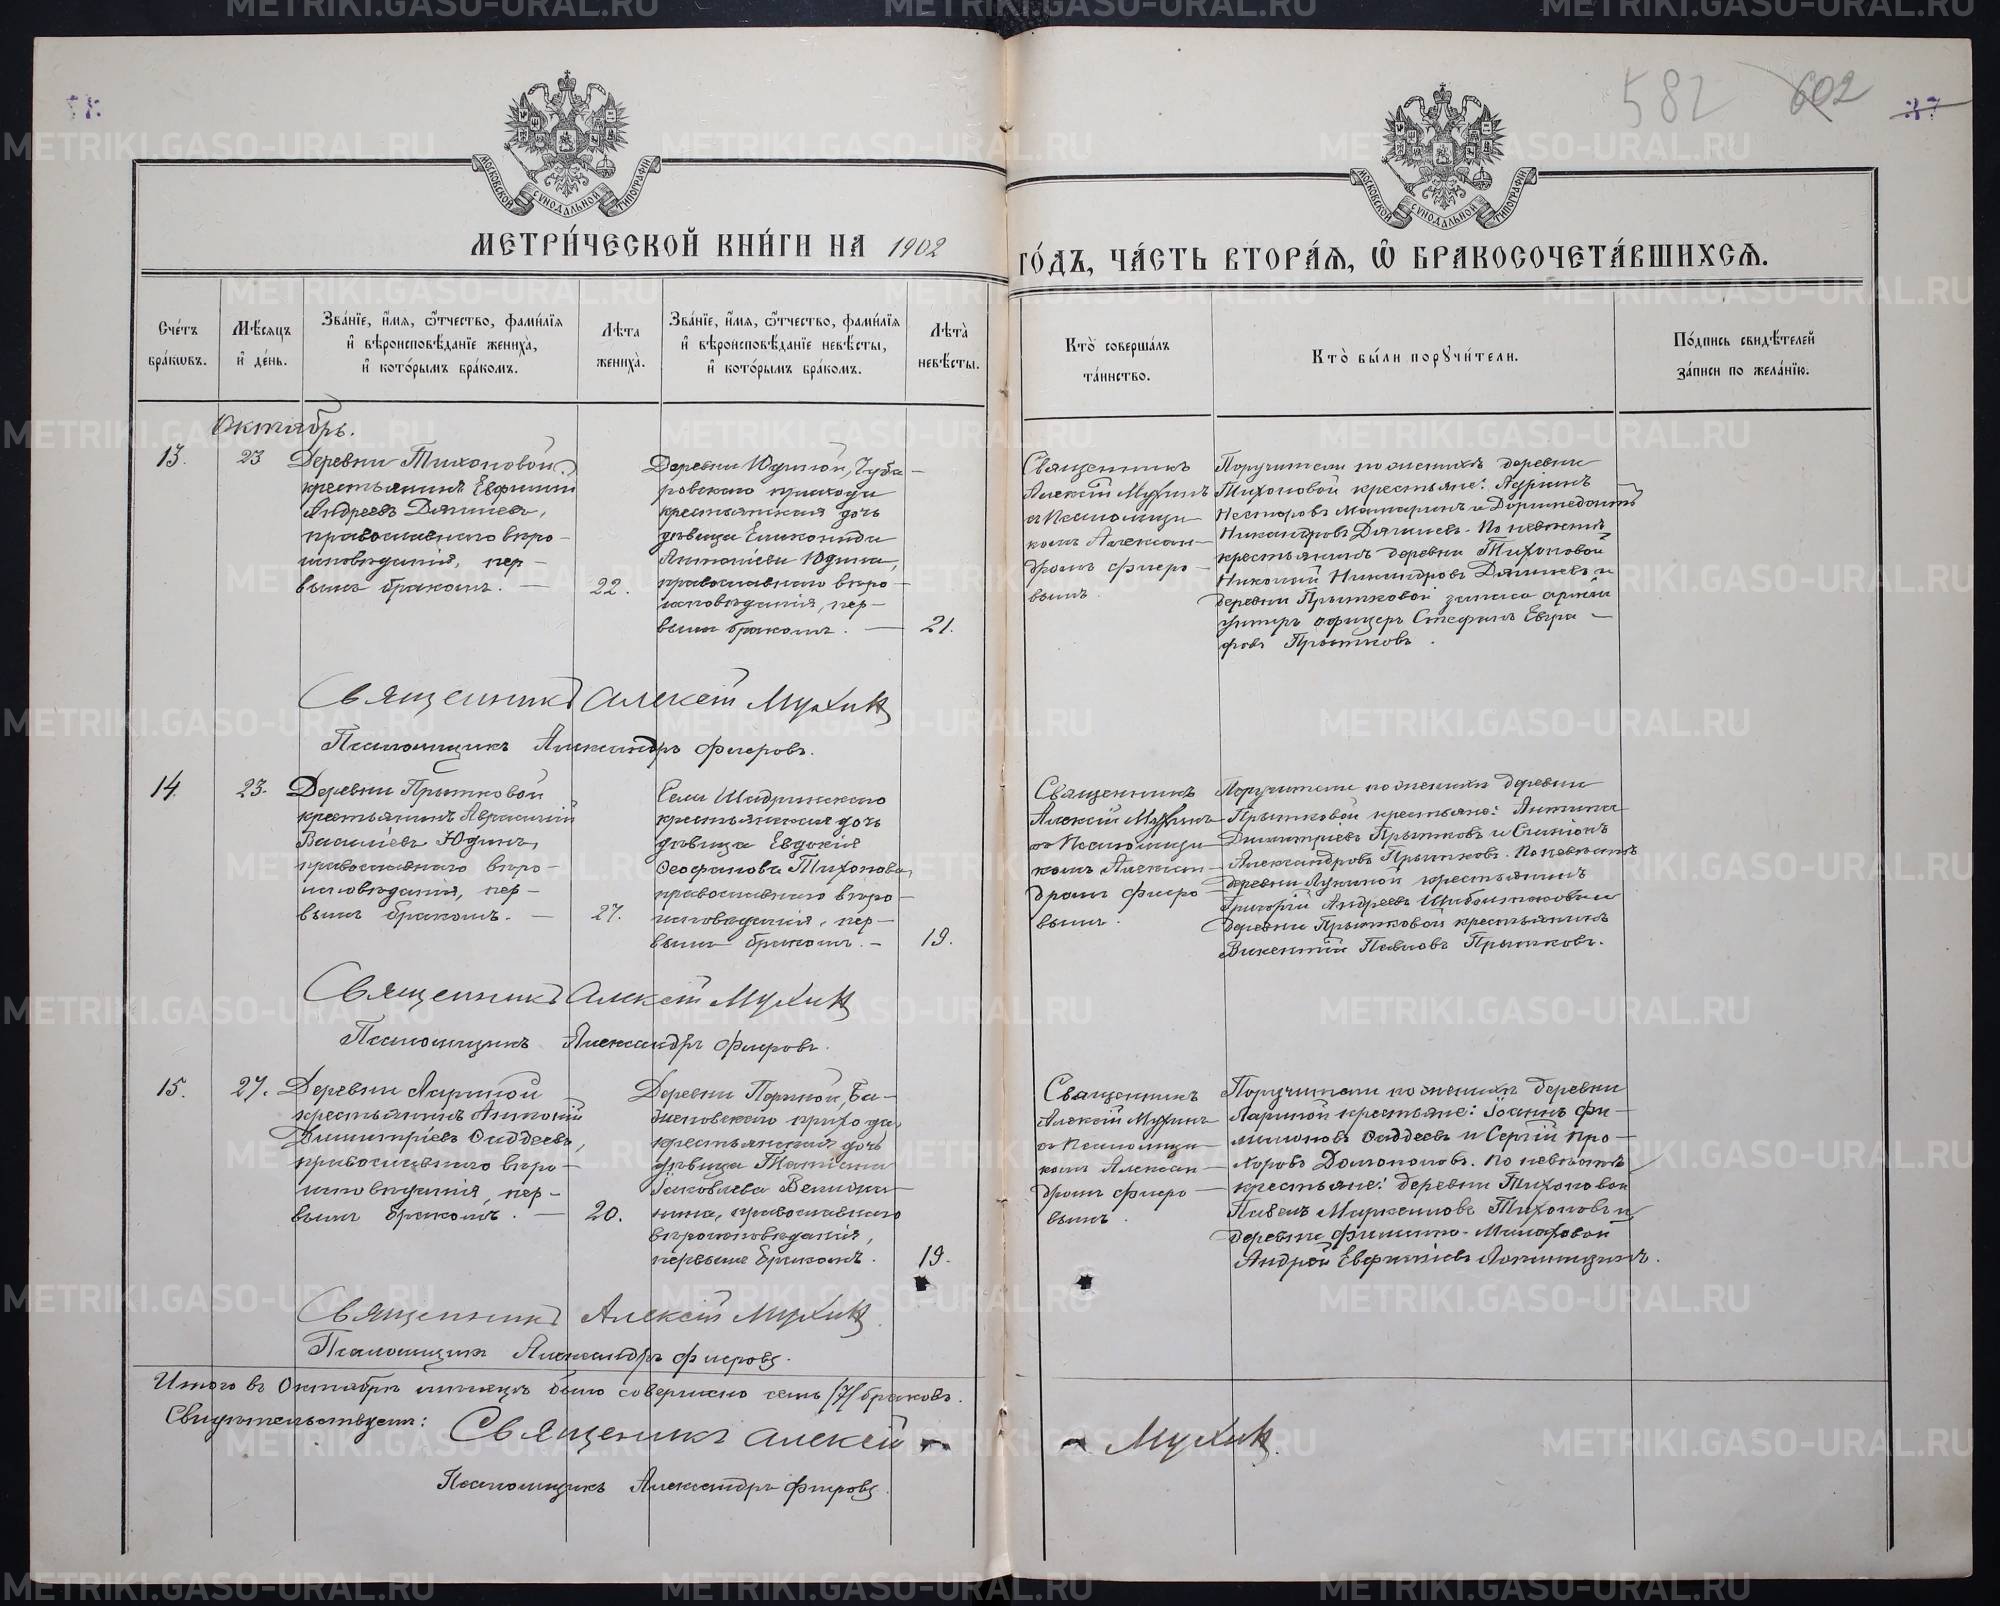 582 602 37
МОСКОВСКОЙ СУНОДАЛЬНОЙ ТИПОГРАФІИ
МОСКОВСКОЙ СУНОДАЛЬНОЙ ТИПОГРАФІИ
МЕТРИ́ЧЕСКОЙ КНИ́ГИ НА 1902
ГО́ДЪ, ЧА́СТЬ ВТОРА́Я, Ѽ БРАКОСОЧЕТА́ВШИХСЯ.
Сче́тъ бра́кѡвъ.
Мѣ́сяцъ и҆ де́нь.
Зва́нїе, и҆́мя, ѻ҆́тчество, фами́лїя
и҆ вѣроисповѣ́данїе жениха̀,
и҆ кото́рымъ бра́комъ.
Лѣ́та жениха̀.
Зва́нїе, и҆́мя, ѻ҆́тчество, фами́лїя
и҆ вѣроисповѣ́данїе невѣ́сты,
и҆ кото́рымъ бра́комъ.
Лѣ́та невѣ́сты.
Кто̀ соверша́лъ
та́инство.
Кто̀ бы́ли порꙋчи́тели.
По́дпись свидѣ́телей
за́писи по жела́нїю.
Октябрь.
13.
23
Деревни Тихоновой
крестьянинъ Евфимій
Андреевъ Дятлевъ,
православнаго вѣро-
исповѣданія, пер-
вымъ бракомъ. —
22.
Деревни Юдиной, Чуба-
ровскаго прихода
крестьянская дочь
дѣвица Еликонида
Юдина,
православнаго вѣро-
исповѣданія, пер-
вымъ бракомъ. —
21.
Священникъ
Алексій Мухинъ
съ Псаломщи-
комъ Алексан-
дромъ Флеро-
вымъ.
Поручители по женихѣ деревни
Тихоновой крестьяне: Адріанъ
Несторовъ и Доримедонтъ
Никандровъ Дятлевъ. По невѣстѣ
крестьянинъ деревни Тихоновой
Николай Никандровъ Дятлевъ и
деревни Прытковой запаса арміи
унтеръ офицеръ Стефанъ Евгра-
фовъ Прытковъ.
Священникъ Алексій Мухинъ
Псаломщикъ Александръ Флеровъ.
14.
23.
Деревни Прытковой
крестьянинъ
Василіевъ Юдинъ,
православнаго вѣро-
исповѣданія, пер-
вымъ бракомъ. —
27.
Села Шадринскаго
крестьянская дочь
дѣвица Евдокія
Ѳеофанова Тихонова,
православнаго вѣро-
исповѣданія, пер-
вымъ бракомъ. —
19.
Священникъ
Алексій Мухинъ
съ Псаломщи-
комъ Алексан-
дромъ Флеро-
вымъ.
Поручители по женихѣ деревни
Прытковой крестьяне: Антипа
Димитріевъ Прытковъ и Симеонъ
Александровъ Прытковъ. По невѣстѣ
деревни Лукиной крестьянинъ
Григорій Андреевъ и
деревни Прытковой крестьянинъ
Викентій Павловъ Прытковъ.
Священникъ Алексій Мухинъ
Псаломщикъ Александръ Флеровъ.
15.
27.
Деревни Лариной
крестьянинъ Антоній
Димитріевъ Ѳаддеевъ,
православнаго вѣро-
исповѣданія, пер-
вымъ бракомъ. —
20.
Деревни Ба-
женовскаго прихода,
крестьянская дочь
дѣвица Татіана
Іаковлева
православнаго
вѣроисповѣданія,
первымъ бракомъ.
19.
Священникъ
Алексій Мухинъ
съ Псаломщи-
комъ Алексан-
дромъ Флеро-
вымъ.
Поручители по женихѣ деревни
Лариной крестьяне: Іоаннъ Фи-
лимоновъ Ѳаддеевъ и Сергій Про-
хоровъ Долгополовъ. По невѣстѣ
крестьяне: деревни Тихоновой
Павелъ Тихоновъ и
деревни
Андрей Евфиміевъ
Священникъ Алексій Мухинъ
Псаломщикъ Александръ Флеровъ.
Итого въ Октябрѣ мѣсяцѣ было совершено семь /7/ браковъ.
Свидѣтельствуемъ: Священникъ Алексій Мухинъ.
Псаломщикъ Александръ Флеровъ.
METRIKI.GASO-URAL.RU